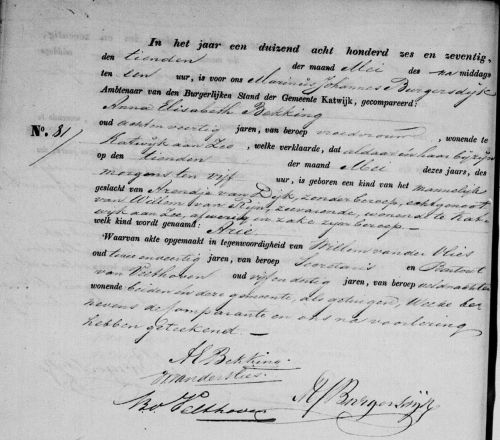 In het jaar een duizend acht honderd zes en zeventig,
den tienden der maand Mei des na middags
ten een uur, is voor ons Marinus Johannes Burgersdijk
Ambtenaar van den Burgerlijken Stand der Gemeente Katwijk, gecompareerd:
Anna Elisabeth Bekking
oud achtenveertig jaren, van beroep vroedvrouw, wonende te
N°. 81 Katwijk aan Zee, welke verklaarde, dat aldaar en haar bijzijn
op den tienden der maand Mei dezes jaars, des
morgens ten vijf uur, is geboren een kind van het mannelijk
geslacht van Arendje van Dijk, zonder beroep, echtgenoot
van Willem van Rijn, zeevarende, wonende te Kat-
wijk aan Zee, afwezig in zake zijn beroep.
welk kind wordt genaamd: Arie.
Waarvan akte opgemaakt in tegenwoordigheid van Willem van der Vlies
oud twee en veertig jaren, van beroep Secretaris en
van Velthoven oud vijf en dertig jaren, van beroep
wonende beiden in deze gemeente, als getuigen, welke be-
nevens de comparante en ons na voorlezing
hebben geteekend.
AE Bekking.
W van der Vlies.
Velthoven
MJ Burgersdijk